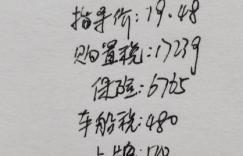 指导价:19.48
购置税:17239
保险:6765
车船税:480
上牌:510